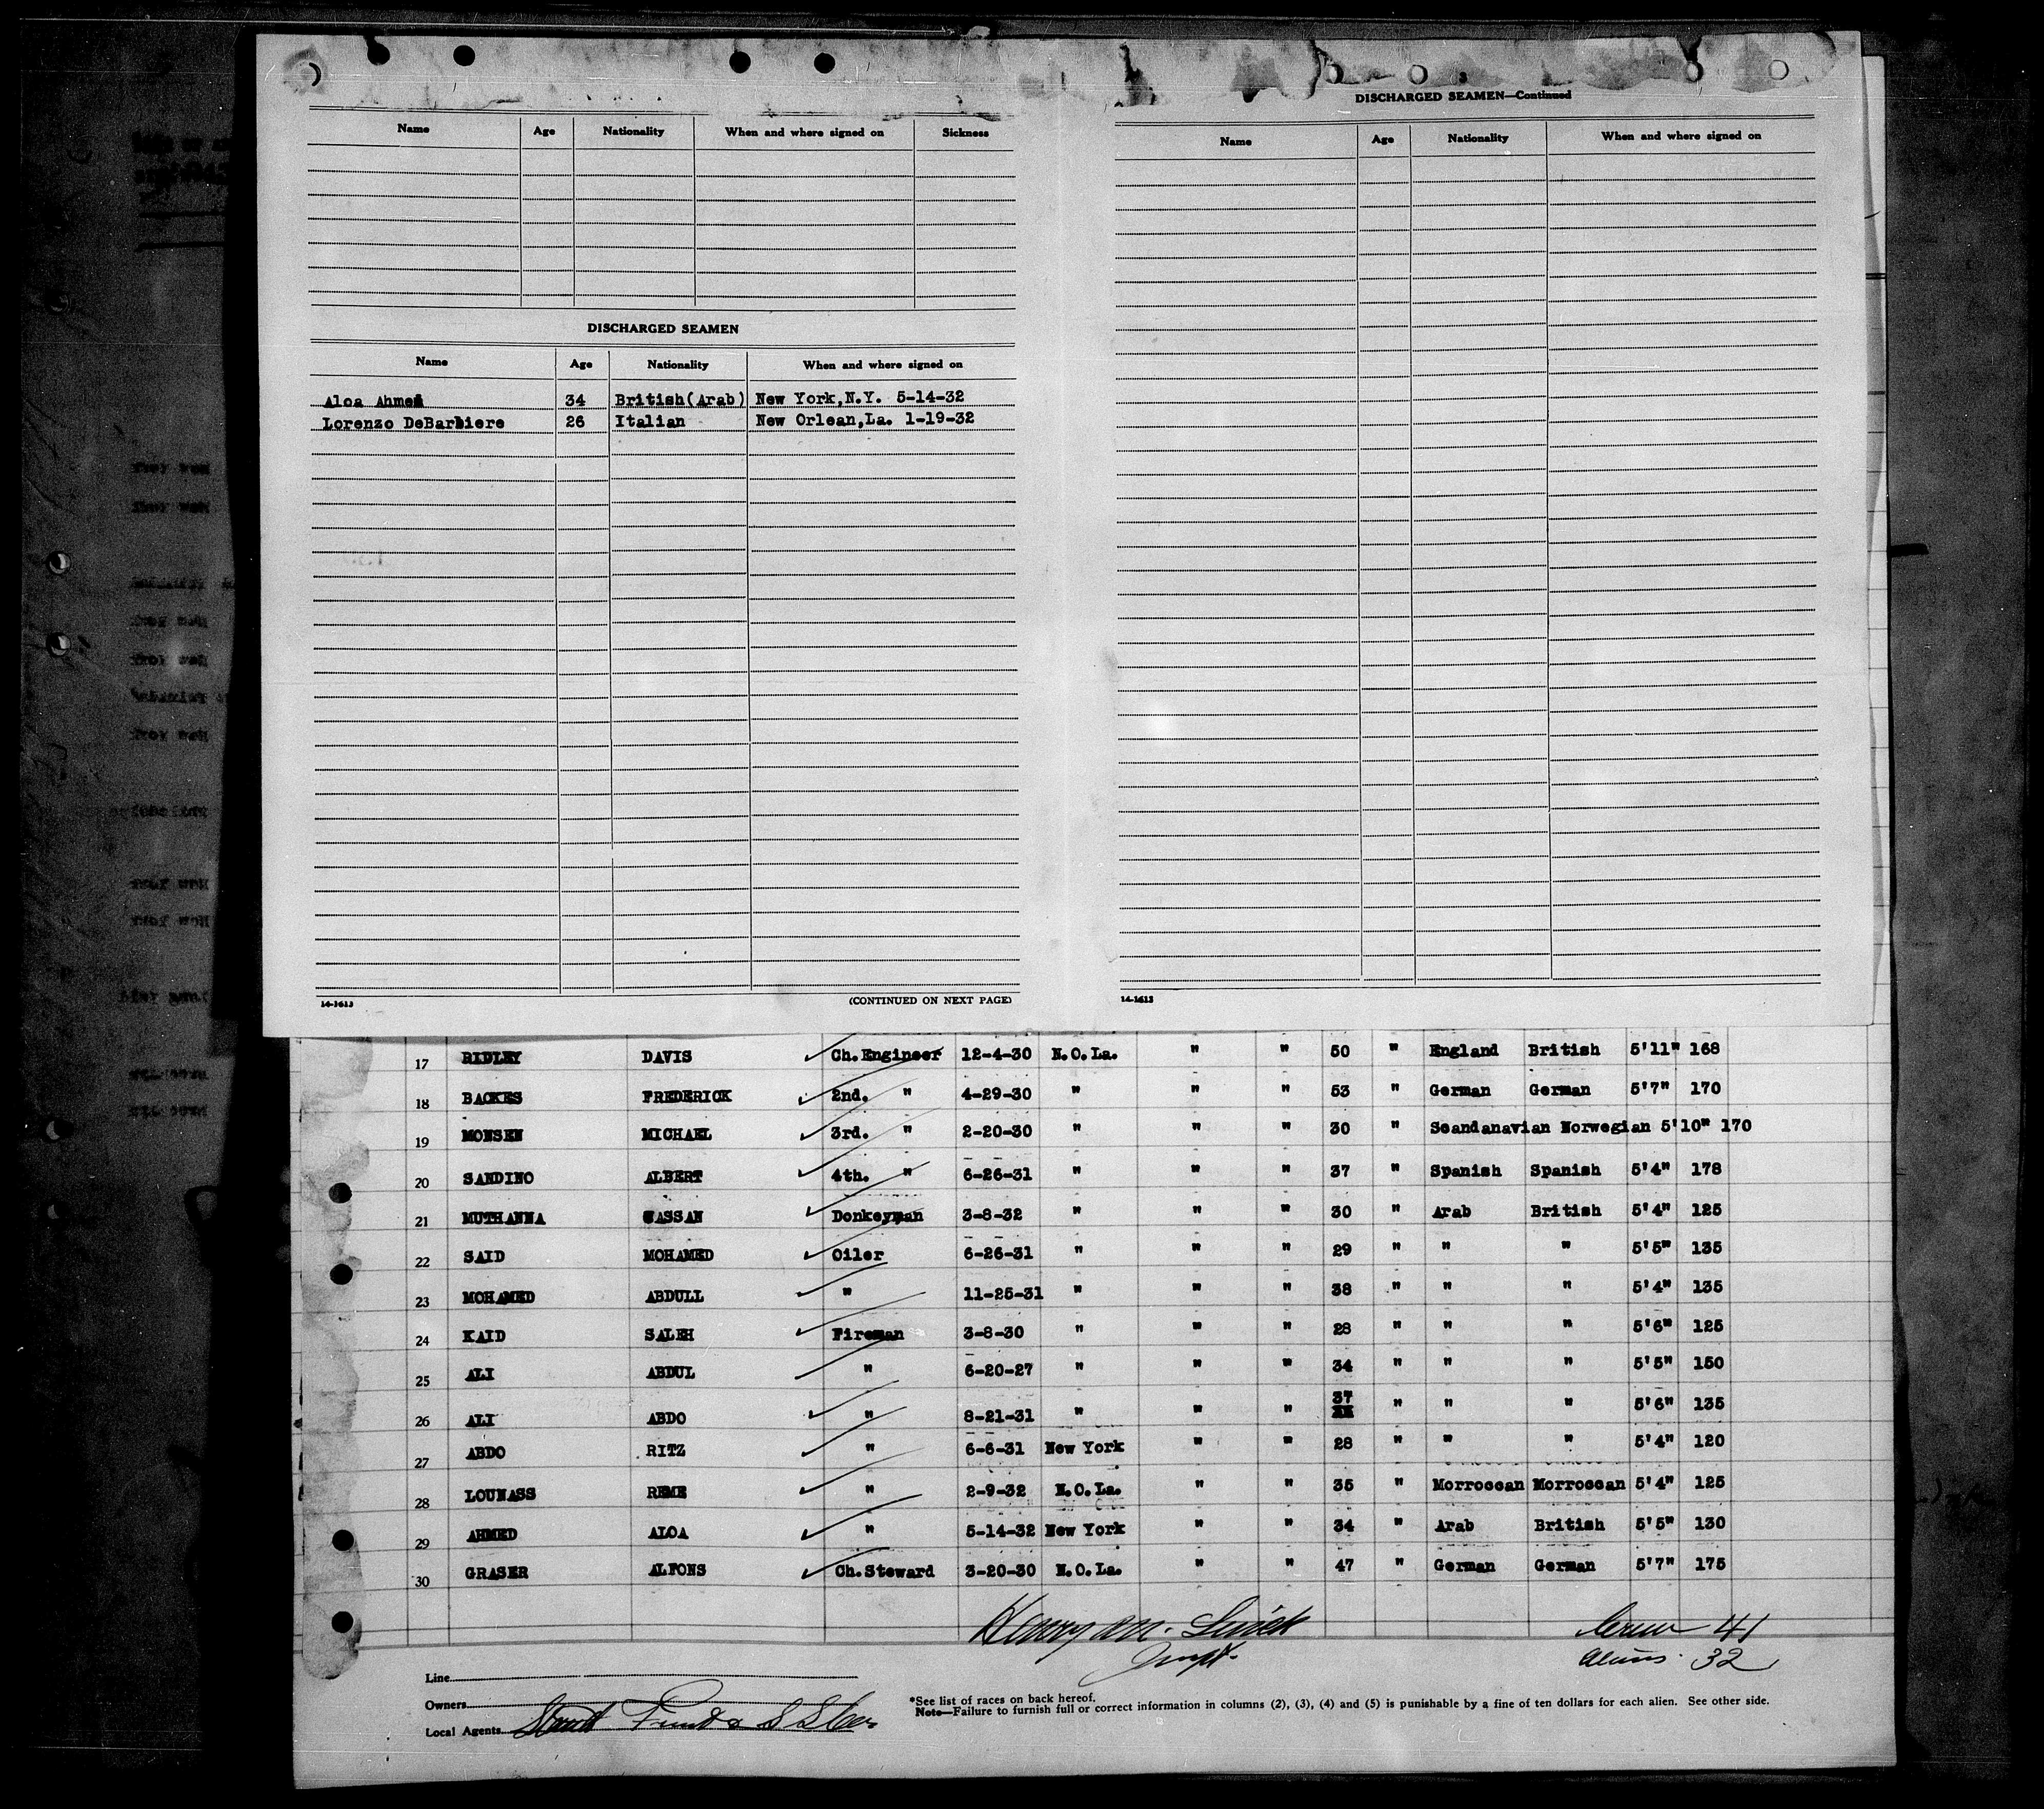 Name Age Nationality When and where signed on Sickness
DISCHARGED SEAMEN
Name Age Nationality When and where signed on
Aloa Ahmed 34 British(Arab) New York,N.Y. 5-14-32
Lorenzo DeBarbiere 26 Italian New Orlean,La. 1-19-32
14-1613 (CONTINUED ON NEXT PAGE)
DISCHARGED SEAMEN—Continued
Name Age Nationality When and where signed on
14-1613
17 RIDLEY DAVIS Ch.Engineer 12-4-30 N.O.La. " " 50 " England British 5'11" 168
18 BACKES FREDERICK 2nd. " 4-29-30 " " " 53 " German German 5'7" 170
19 MONSEN MICHAEL 3rd. " 2-20-30 " " " 30 " Scandanavian Norwegian 5'10" 170
20 SANDINO ALBERT 4th. " 6-26-31 " " " 37 " Spanish Spanish 5'4" 178
21 MUTHANNA GASSAN Donkeyman 3-8-32 " " " 30 " Arab British 5'4" 125
22 SAID MOHAMED Oiler 6-26-31 " " " 29 " " " 5'5" 135
23 MOHAMED ABDULL " 11-25-31 " " " 38 " " " 5'4" 135
24 KAID SALEH Fireman 3-8-30 " " " 28 " " " 5'6" 125
25 ALI ABDUL " 6-20-27 " " " 34 " " " 5'5" 150
26 ALI ABDO " 8-21-31 " " " 37 " " " 5'6" 135
27 ABDO RITZ " 6-6-31 New York " " 28 " " " 5'4" 120
28 LOUNASS REME " 2-9-32 N.O.La. " " 35 " Morroccan Morroccan 5'4" 125
29 AHMED ALOA " 5-14-32 New York " " 34 " Arab British 5'5" 130
30 GRASER ALFONS Ch.Steward 3-20-30 N.O.La. " " 47 " German German 5'7" 175
Crew 41
Aliens 32
Line
Owners
Local Agents
*See list of races on back hereof.
Note—Failure to furnish full or correct information in columns (2), (3), (4) and (5) is punishable by a fine of ten dollars for each alien. See other side.